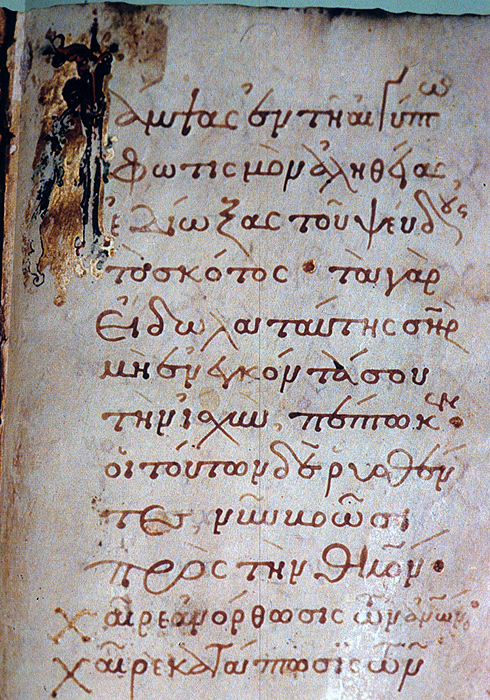 Λάμψας ἐν τῆ αἰγύπτω
φωτισμὸν ἀληθείας
ἐδίωξας τοῦ ψεύδους
τὸ σκότος · τὰ γὰρ
εἴδωλα ταύτης σῆρ
μὴ ἐνεγκόντα σου
τὴν ἰσχὺν, πέπτωκεν ·
οἱ τούτων δὲ ρυσθέν
τες, νῦν βοῶσι
πρὸς τὴν Θκον ·
χαῖρε ἀνόρθωσις τῶν ἀνων ·
χαῖρε κατάπτωσις τῶν